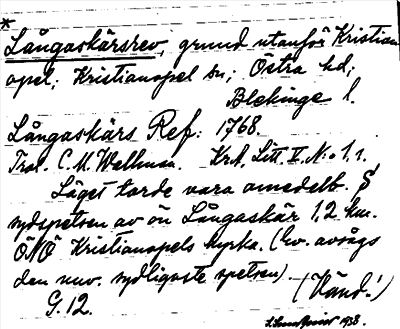 *
Långaskärsrev, grund utanför Kristian-
opel; Kristianopel sn; Östra hd;
Blekinge l.
Långaskärs Ref: 1768.
Trol. C.M. Wallman. Kr.A. Litt. V. N:o 1,1.
Läget torde vara omedelb. S
sydspetsen av ön Långaskär 1,2 km.
ÖNÖ Kristianopels kyrka. (Ev. avsågs
den nuv. sydligaste spetsen).
(Vänd!)
G. 12.
1938.